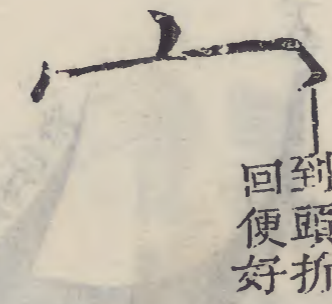 到頭折
回便好